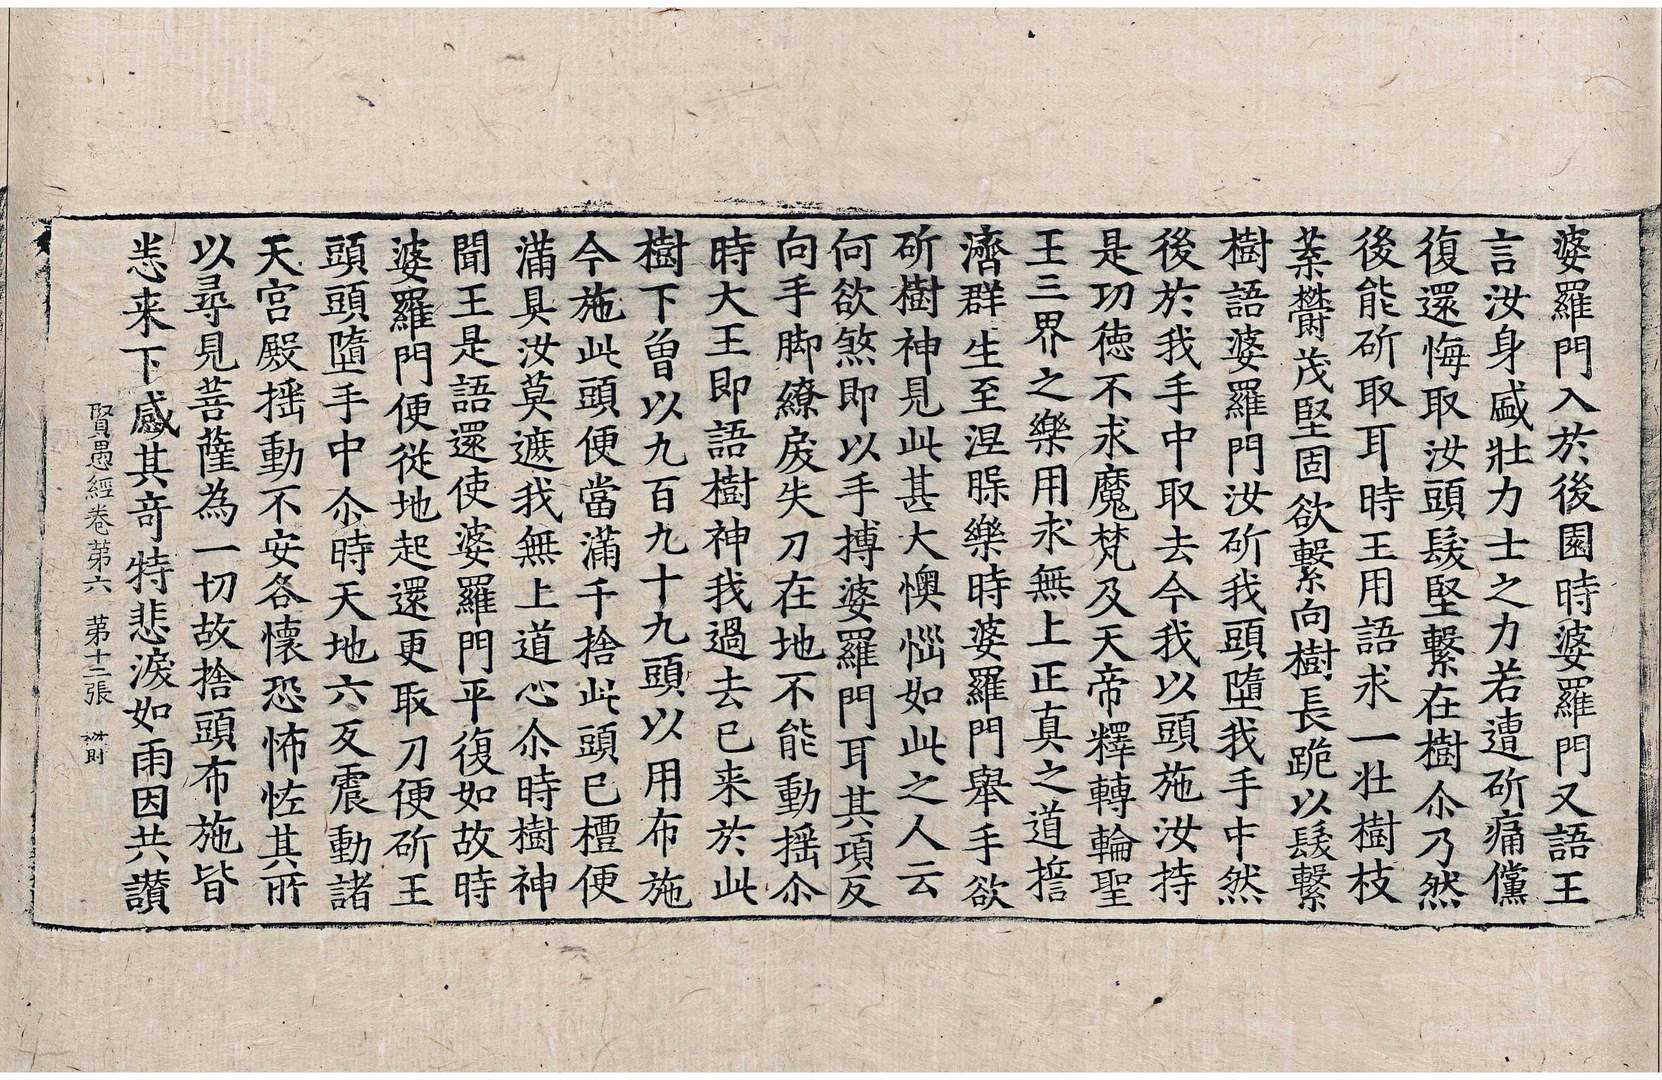 婆羅門入於後園時婆羅門又語王
言汝身盛壯力士之力若遭斫痛儻
復還悔取汝頭髮堅繫在樹尒乃然
後能斫取耳時王用語求一壯樹枝
葉欝茂堅固欲繫向樹長跪以髮繫
樹語婆羅門汝斫我頭墮我手中然
後於我手中取去今我以頭施汝持
是功德不求魔梵及天帝釋轉輪聖
王三界之樂用求無上正真之道誓
濟群生至涅槃樂時婆羅門舉手欲
斫樹神見此甚大懊惱如此之人云
何欲煞即以手搏婆羅門耳其項反
向手脚繚戾失刀在地不能動搖尒
時大王即語樹神我過去已来於此
樹下曽以九百九十九頭以用布施
今施此頭便當滿千捨此頭已檀便
滿具汝莫遮我無上道心尒時樹神
聞王是語還使婆羅門平復如故時
婆羅門便從地起還更取刀便斫王
頭頭墮手中尒時天地六反震動諸
天宮殿搖動不安各懷恐怖恠其所
以尋見菩薩為一切故捨頭布施皆
悉来下感其竒特悲淚如雨因共讚
賢愚經卷第六 第十二張